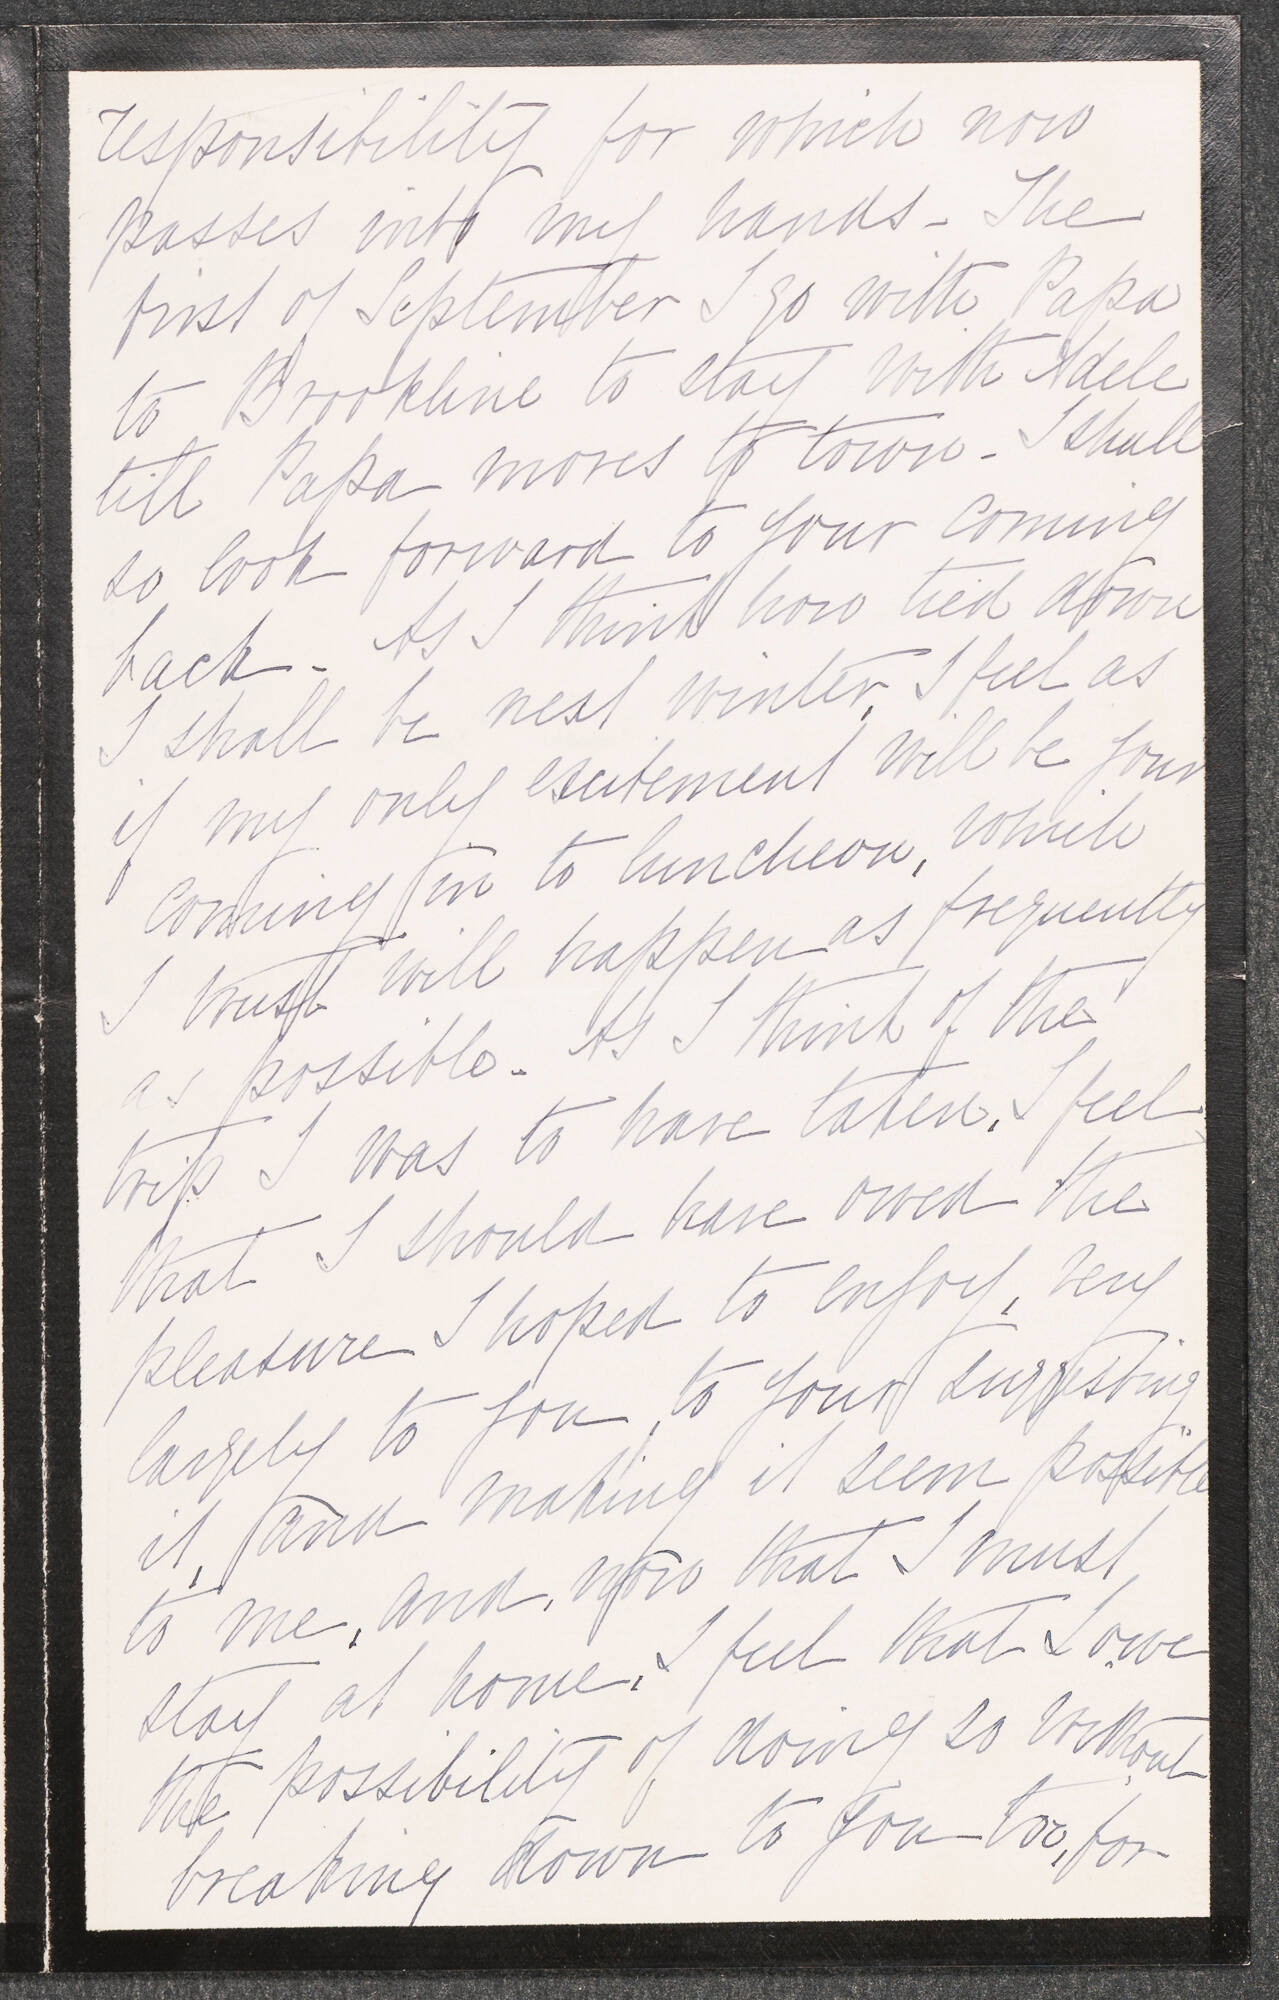 responsibility for which now
passes into my hands - The
first of September I go with Papa
to Brookline to stay with Adele
till Papa moves to town - I shall
so look forward to your coming
back - As I think how tied down
I shall be next winter, I feel as
if my only excitement will be your
coming in to luncheon, which
I trust will happen as frequently
as possible - As I think of the
trip I was to have taken, I feel
that I should have owed the
pleasure I hoped to enjoy, very
largely to you, to your suggesting
it, and making it seem possible
to me, and, now that I must
stay at home, I feel that I owe
the possibility of doing so without
breaking down to you too, for